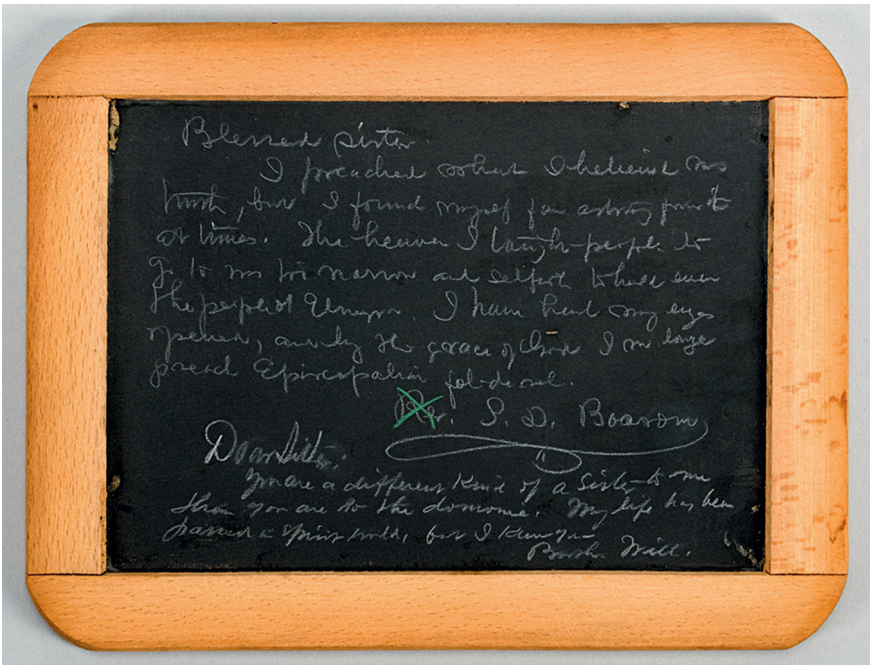 Blessed Sister.
I preached what I believed was
truth, but I found myself far astray from it
at times. The heaven I taught people to
go to was too narrow and selfish to hold even
the people of Elmyra. I have had my eyes
opened, and by the grace of God I no longer
preach Episcopalian
Rev. S. D. Boarom
Dear Sister.
You are a different kind of a Sister to me
than you are to the domonie. My life has been
passed in Spirit world, but I know you
Brother Will.